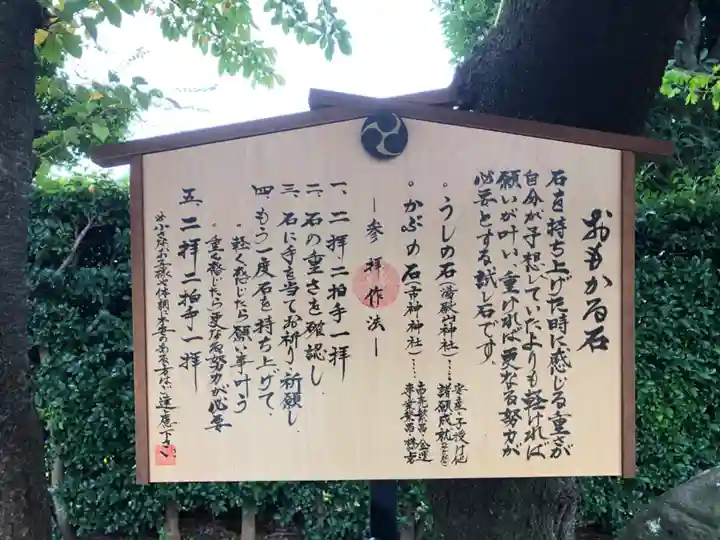 おもかる石
石を持ち上げた時に感じる重さが
自分が予想していたよりも軽ければ
願いが叶い、重ければ更なる努力が
必要とする試し石です。
。うしの石(湯殿山神社)....安産・子授け他
諸願成就など
。かぶの石(市神神社)....商売繁昌・金運
ー参拝作法ー
一、二拝二拍手一拝
二、石の重さを確認し
三、石に手を当てお祈り・祈願し
四、もう一度石を持ち上げて、
・軽く感じたら願い事叶う
・重く感じたら更なる努力が必要
五、二拝二拍手一拝
※小さなお子様や体調に不安のある方はご遠慮下さい